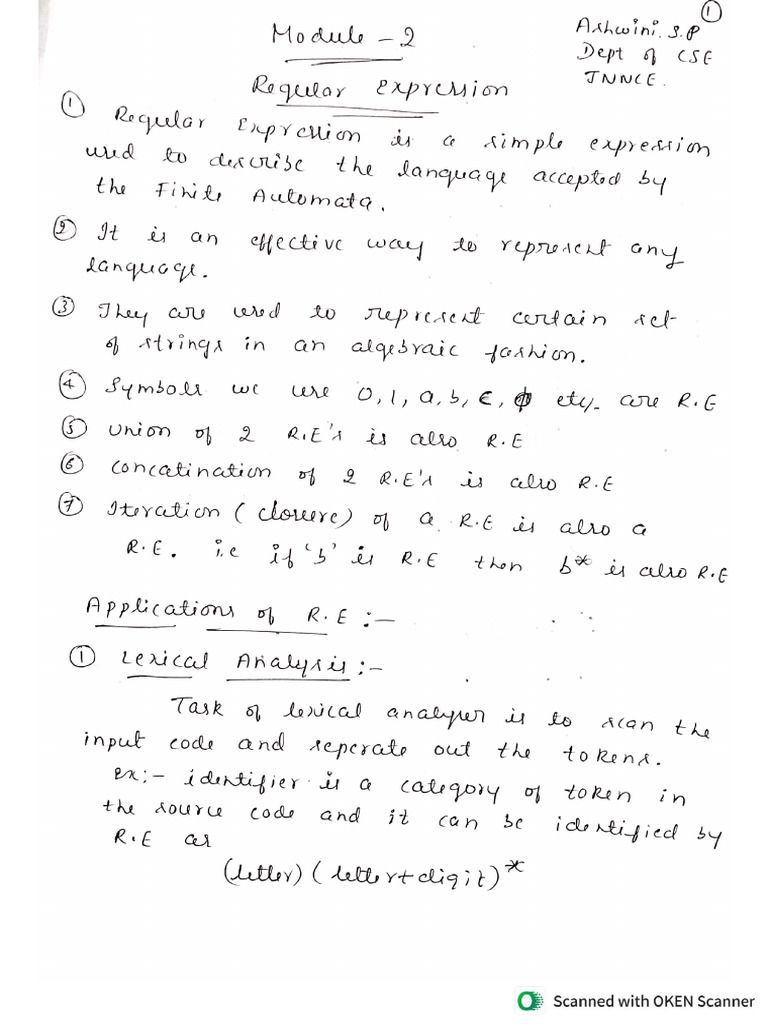 ①
Module - 2
Ashwini. S.P
Dept of CSE
JNNCE.
Regular Expression
① Regular Expression is a simple expression
used to describe the language accepted by
the Finite Automata.
② It is an effective way to represent any
language.
③ They are used to represent certain set
of strings in an algebraic fashion.
④ Symbols we use 0, 1, a, b, ϵ, ϕ etc. are R.E
⑤ Union of 2 R.E's is also R.E
⑥ Concatination of 2 R.E's is also R.E
⑦ Iteration (closure) of a R.E is also a
R.E. i.e if 'b' is R.E then b* is also R.E
Applications of R.E :-
① Lexical Analysis :-
Task of lexical analyser is to scan the
input code and seperate out the tokens.
ex:- identifier is a category of token in
the source code and it can be identified by
R.E as
(letter) (letter+digit)*
Scanned with OKEN Scanner